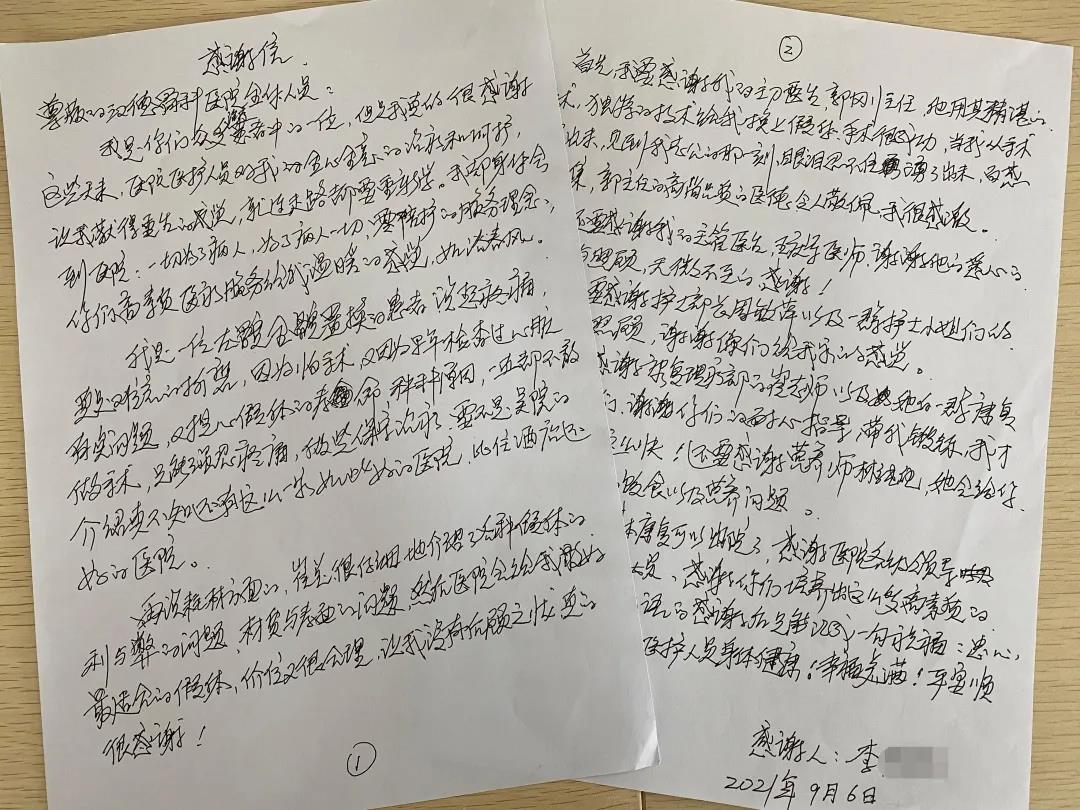 感谢信
尊敬的汉德骨科医院全体人员：
我是你们众多患者中的一位，但是我真的很感谢
这些天来，医院医护人员对我的全心全意的治疗和呵护，
让我获得重生的感觉，就连走路都要重学。我却身体会
到医院：一切为了病人，为了病人一切，要精护的服务理念，
你们高素质医疗服务给我温暖的感觉，如沐春风。
我是一位左髋全髋置换的患者，说起这病，
要是的折磨，因为怕手术，又因为早年检查过心脏
有点问题，又担心假体的寿命 种种原因，一直都不敢
做手术，只能强忍疼痛，做些保守治疗，要不是吴院的
介绍真不知还有这么一家如此好的医院，
好的医院。
再说耗材方面的，崔总很仔细地介绍了各种假体的
利与弊的问题，材质与寿命的问题，然后医院会给我最好
最适合的假体，价位又很合理，让我没有后顾之忧，真的
很感谢！
①
②
首先，我要感谢我的主刀医生郭刚主任，他用其精湛的
术，独特的技术给我换上假体，手术很成功，当我从手术
出来，见到我老公的那一刻，眼泪忍不住涌了出来，百感
集，郭主任的高尚品质的医德，令人敬佩，我很感激。
还要感谢我的主管医生，医师，谢谢他的悉心的
照顾，无微不至的感谢！
要感谢护士部长周敏萍以及一群护士小姐们的
照顾，谢谢你们给我家的感觉。
感谢康复理疗部的崔老师以及她的一群康复
，谢谢你们的耐心指导，带我锻练，我才
这么快！还要感谢营养师林，她会给你
饮食以及营养问题。
康复可以出院了，感谢医院各级领导
员，感谢你们培养出这么多高素质的
语的感谢后只能汇成一句祝福：衷心
医护人员身体健康！幸福美满！平安顺
感谢人：李
2021年9月6日